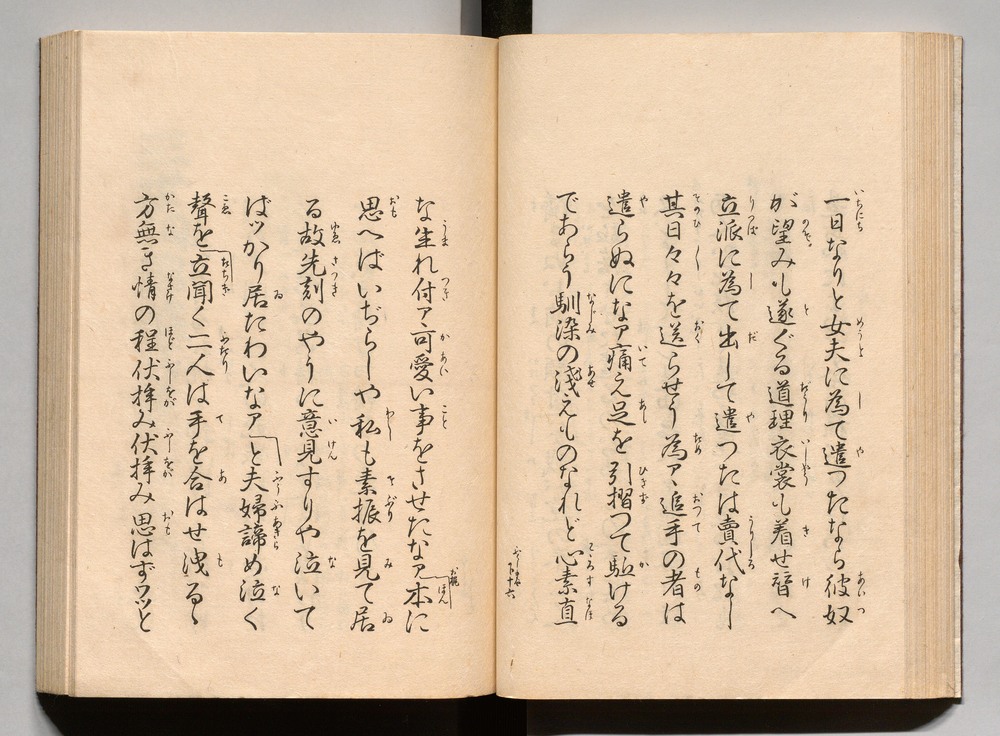 一日なりと女夫に為て遣つたなら彼奴
が望みも遂ぐる道理衣裳も着せ替へ
立派に為て出して遣つたは賣代なし
其日々々を送らせう為ア追手の者は
遣らぬになア痛え足を引摺つて駈ける
であらう馴染の淺えものなれど心素直
な生れ付ア可愛い事をさせたなア本に
思へばいぢらしや私も素振を見て居
る故先刻のやうに意見すりや泣いて
ばツかり居たわいなアと夫婦諦め泣く
聲を立聞く二人は手を合はせ洩るゝ
方無き情の程伏拝み伏拝み思はずワツと